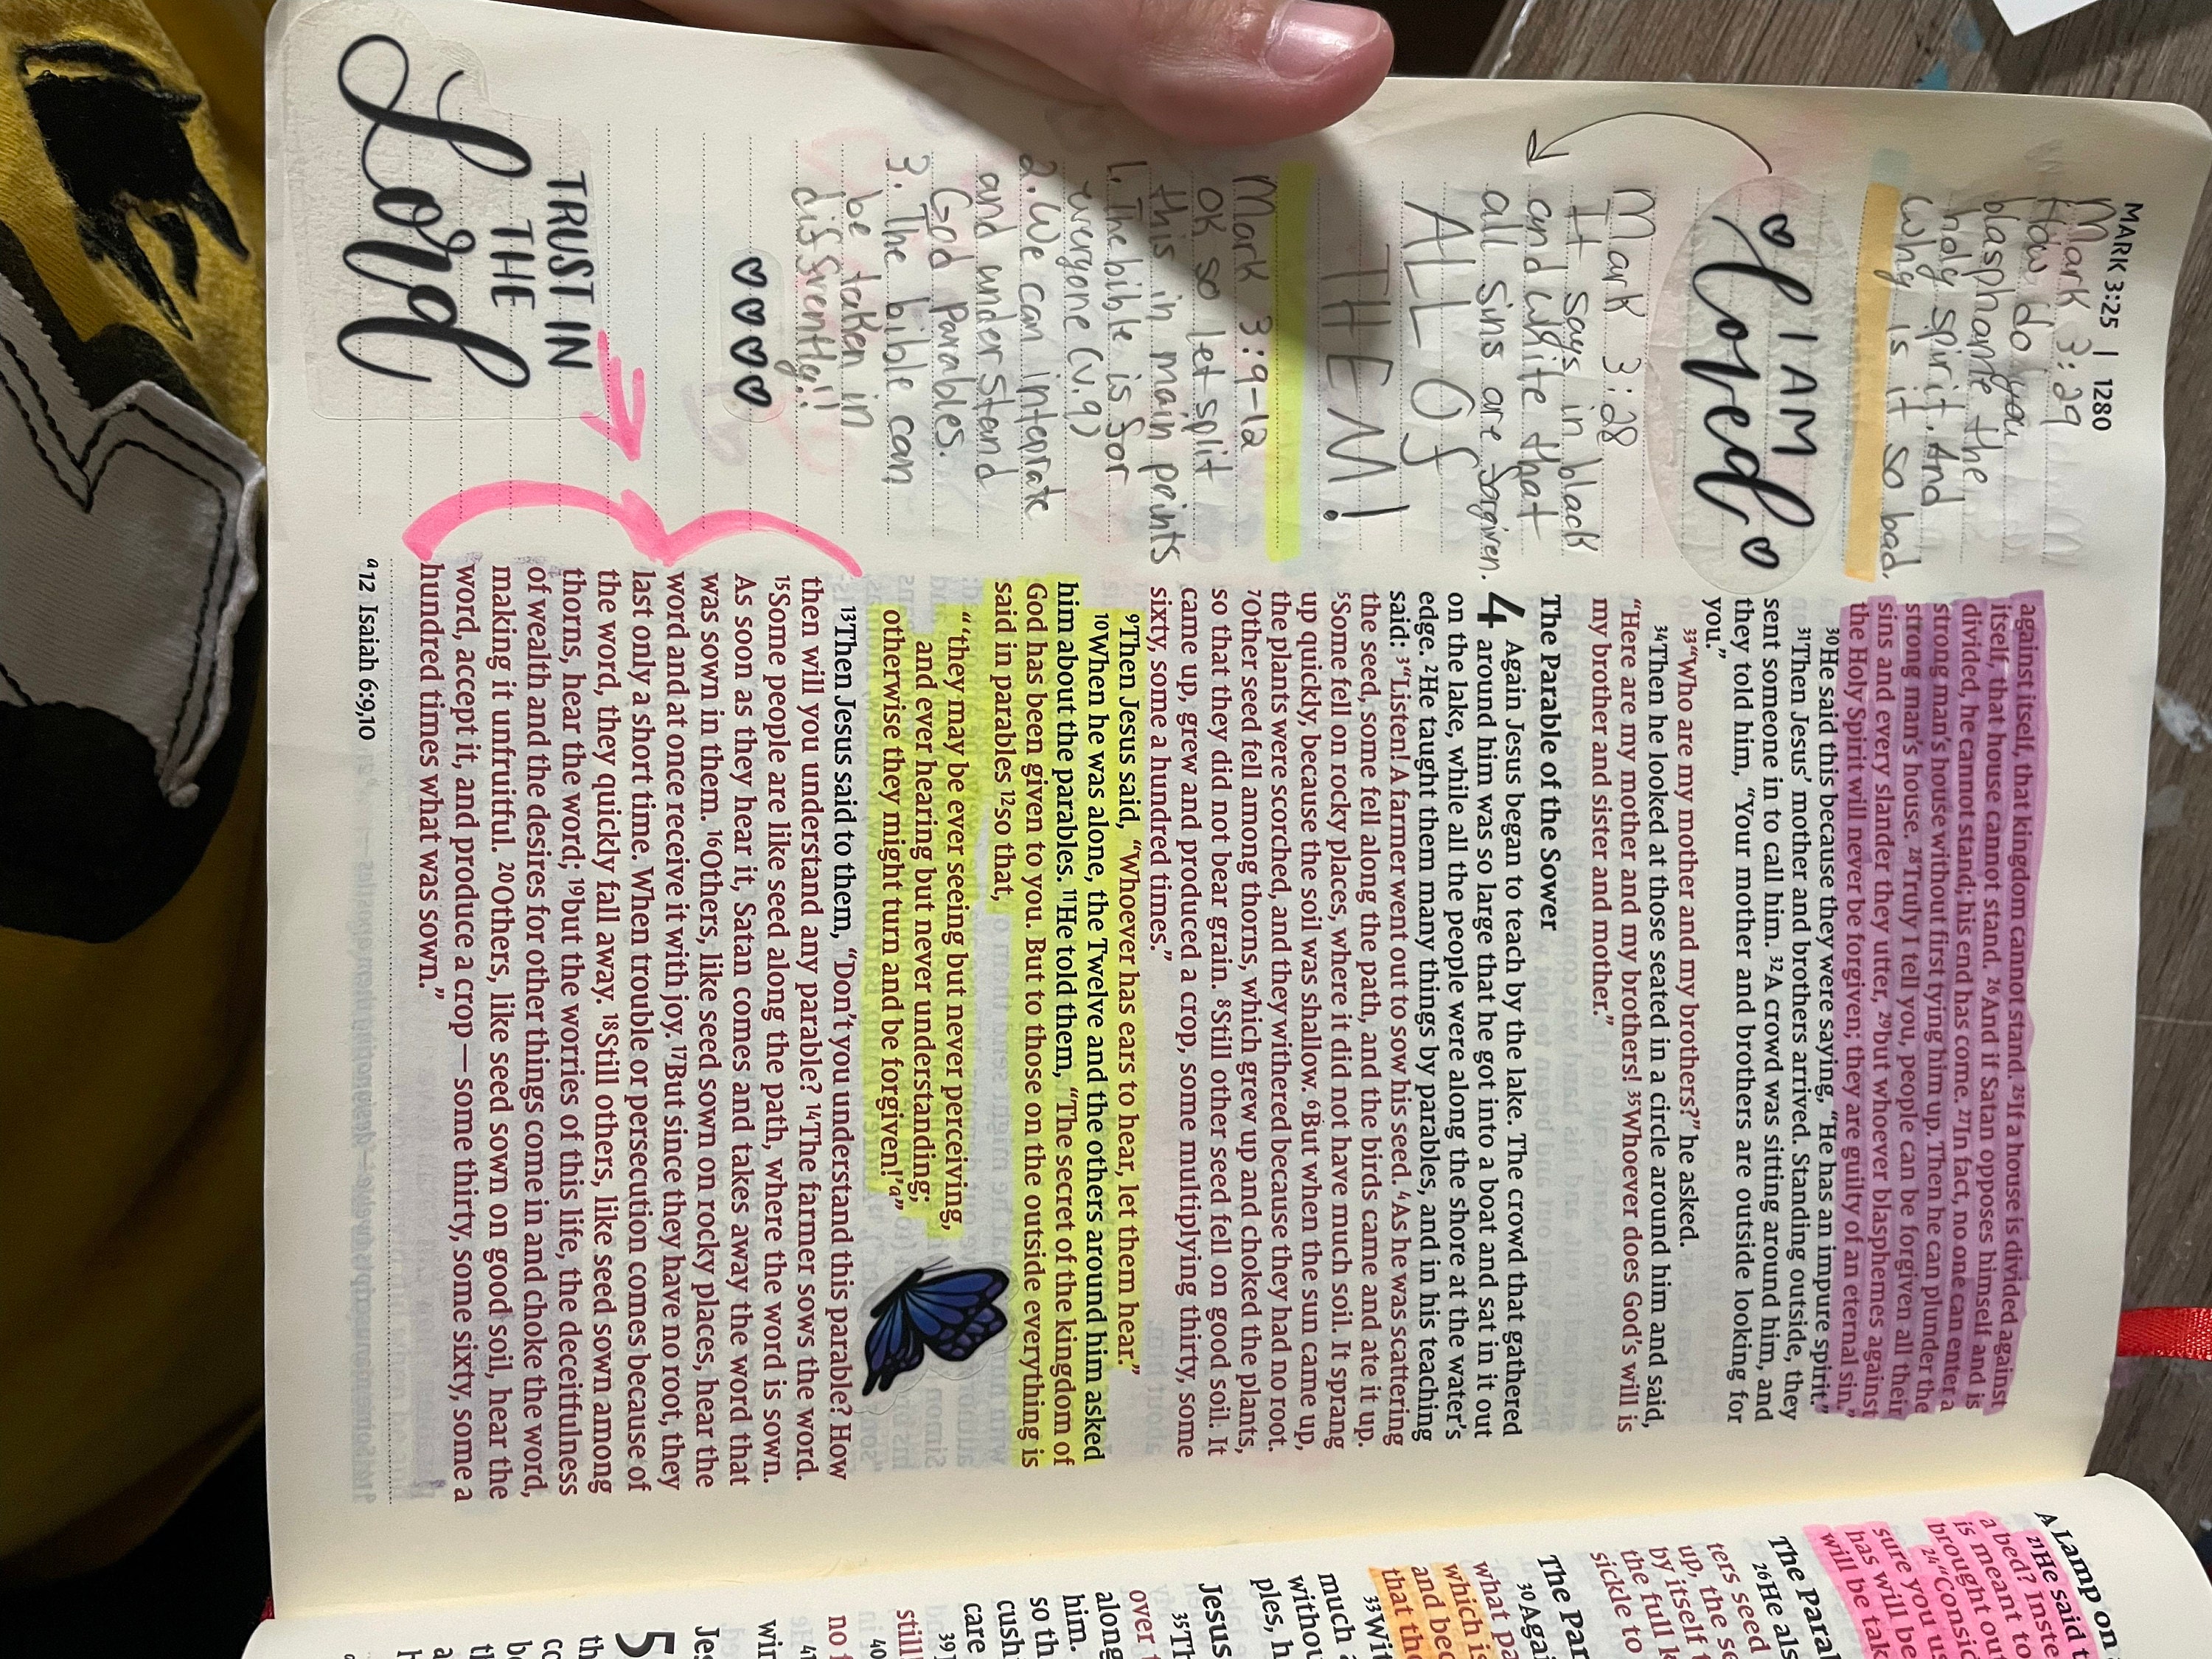 MARK 3:25 | 1280
Mark 3:29
How do you
blasphame the
holy spirit. And
why is it so bad.
I AM
Loved
Mark 3:28
It says in black
and white that
all sins are forgiven.
ALL Of
THEM!
Mark 3:9-12
OK so let split
this in main points
1. The bible is for
everyone (v.9)
2. We can interprate
and understand
God parables.
3. The bible can
be taken in
differently!!
TRUST IN
THE
Lord
against itself, that kingdom cannot stand. 25If a house is divided against
itself, that house cannot stand. 26And if Satan opposes himself and is
divided, he cannot stand; his end has come. 27In fact, no one can enter a
strong man's house without first tying him up. Then he can plunder the
strong man's house. 28Truly I tell you, people can be forgiven all their
sins and every slander they utter, 29but whoever blasphemes against
the Holy Spirit will never be forgiven; they are guilty of an eternal sin."
30He said this because they were saying, "He has an impure spirit."
31Then Jesus' mother and brothers arrived. Standing outside, they
sent someone in to call him. 32A crowd was sitting around him, and
they told him, "Your mother and brothers are outside looking for
you."
33"Who are my mother and my brothers?" he asked.
34Then he looked at those seated in a circle around him and said,
"Here are my mother and my brothers! 35Whoever does God's will is
my brother and sister and mother."
The Parable of the Sower
4 Again Jesus began to teach by the lake. The crowd that gathered
around him was so large that he got into a boat and sat in it out
on the lake, while all the people were along the shore at the water's
edge. 2He taught them many things by parables, and in his teaching
said: 3"Listen! A farmer went out to sow his seed. 4As he was scattering
the seed, some fell along the path, and the birds came and ate it up.
5Some fell on rocky places, where it did not have much soil. It sprang
up quickly, because the soil was shallow. 6But when the sun came up,
the plants were scorched, and they withered because they had no root.
7Other seed fell among thorns, which grew up and choked the plants,
so that they did not bear grain. 8Still other seed fell on good soil. It
came up, grew and produced a crop, some multiplying thirty, some
sixty, some a hundred times."
9Then Jesus said, "Whoever has ears to hear, let them hear."
10When he was alone, the Twelve and the others around him asked
him about the parables. 11He told them, "The secret of the kingdom of
God has been given to you. But to those on the outside everything is
said in parables 12so that,
"'they may be ever seeing but never perceiving,
and ever hearing but never understanding;
otherwise they might turn and be forgiven!'a"
13Then Jesus said to them, "Don't you understand this parable? How
then will you understand any parable? 14The farmer sows the word.
15Some people are like seed along the path, where the word is sown.
As soon as they hear it, Satan comes and takes away the word that
was sown in them. 16Others, like seed sown on rocky places, hear the
word and at once receive it with joy. 17But since they have no root, they
last only a short time. When trouble or persecution comes because of
the word, they quickly fall away. 18Still others, like seed sown among
thorns, hear the word; 19but the worries of this life, the deceitfulness
of wealth and the desires for other things come in and choke the word,
making it unfruitful. 20Others, like seed sown on good soil, hear the
word, accept it, and produce a crop—some thirty, some sixty, some a
hundred times what was sown."
a12 Isaiah 6:9,10
A Lamp on
21He said t
a bed? Inste
is meant to
brought out
24"Consid
sure you us
has will be
will be tak
The Paral
26He als
ters seed
up, the se
by itself
the full k
sickle to
The Par
30Agai
what pa
which is
and bec
that the
33Wit
much a
withou
ples, h
Jesus
35Th
over t
along
him.
so th
cush
care
39
still
40
no f
41
wir
5 Jes
th
co
b
tl
a